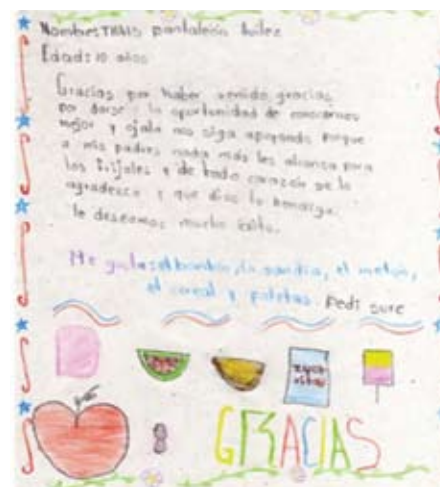 Nombre: THAIS pantaleón
Edad: 10 años
Gracias por haber venido gracias
por darse la oportunidad de conocernos
mejor y ojala nos siga apoyando porque
a mis padres nada más les alcanza para
los frijoles y de todo corazón se lo
agradesco y que dios lo bendiga.
le deseamos mucho éxito.
Me gusta el bombón, la sandía, el melón,
el cereal y paletas. Pedi sure
GRACIAS